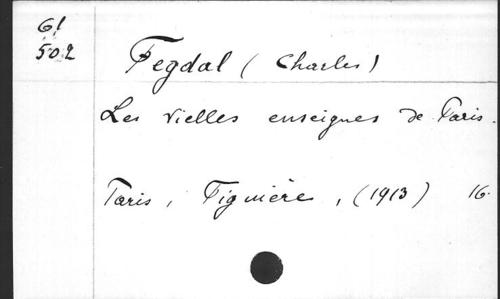 61
502
Fegdal (Charles)
Les vielles enseignes de Paris.
Paris, Figuière, (1913) 16.